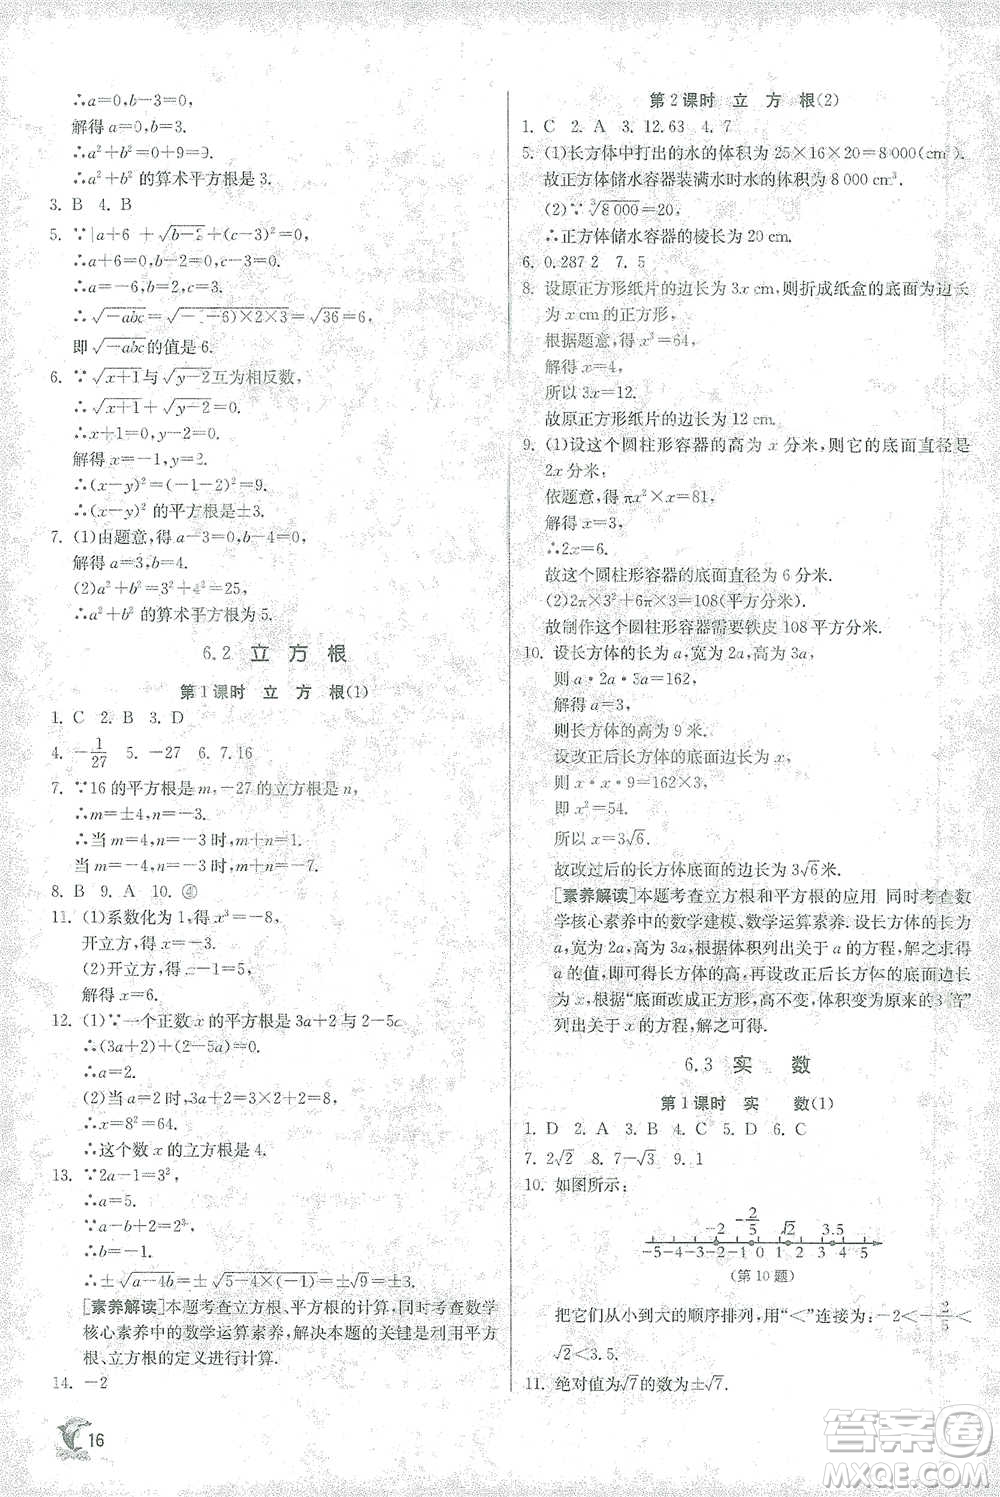 ∴a=0,b-3=0,
解得 a=0,b=3.
∴a²+b²=0+9=9.
∴a²+b² 的算术平方根是 3.
3. B 4. B
5. ∵|a+6|+√(b-2)+(c-3)²=0,
∴a+6=0,b-2=0,c-3=0.
∴a=-6,b=2,c=3.
∴√(-abc)=√(-(-6)×2×3)=√36=6,
即√(-abc)的值是 6.
6. ∵√(x+1)与√(y-2)互为相反数,
∴√(x+1)+√(y-2)=0.
∴x+1=0,y-2=0.
解得 x=-1,y=2.
∴(x-y)²=(-1-2)²=9.
∴(x-y)² 的平方根是±3.
7. (1)由题意,得 a-3=0,b-4=0,
解得 a=3,b=4.
(2)a²+b²=3²+4²=25,
∴a²+b² 的算术平方根为 5.
6.2 立方根
第1课时 立方根(1)
1. C 2. B 3. D
4. -1/27 5. -27 6. 7.16
7. ∵16 的平方根是 m,-27 的立方根是 n,
∴m=±4,n=-3.
∴当 m=4,n=-3 时,m+n=1;
当 m=-4,n=-3 时,m+n=-7.
8. B 9. A 10. ④
11. (1)系数化为 1,得 x³=-8,
开立方,得 x=
(2)开立方,得 x-1=5,
解得 x=6.
12. (1)∵一个正数 x 的平方根是 3a+2 与 2-5a,
∴(3a+2)+(2-5a)=0.
∴a=2.
(2)当 a=2 时,3a+2=3×2+2=8,
∴x=8²=64.
∴这个数 x 的立方根是 4.
13. ∵2a-1=3²,
∴a=5.
∵a-b+2=2³,
∴b=-1.
∴±√(a-4b)=±√(5-4×(-1))=±3.
[素养解读]本题考查立方根、平方根的计算,同时考查数学
核心素养中的数学运算素养,解决本题的关键是利用平方
根、立方根的定义进行计算.
14. -2
16
第2课时 立方根(2)
1. C 2. A 3. 12.63 4. 7
5. (1)长方体中打出的水的体积为 25×16×20=8 000(cm³),
故正方体储水容器装满水时水的体积为 8 000 cm³.
(2)∵∛8 000=20,
∴正方体储水容器的棱长为 20 cm.
6. 0.287 2 7. 5
8. 设原正方形纸片的边长为 3x cm,则折成纸盒的底面为边长
为 x cm的正方形,
根据题意,得 x³=64,
解得 x=4,
所以 3x=12.
故原正方形纸片的边长为 12 cm.
9. (1)设这个圆柱形容器的高为 x 分米,则它的底面直径是
2x 分米,
依题意,得 πx²×x=81,
解得 x=3,
∴2x=6.
故这个圆柱形容器的底面直径为 6 分米.
(2)2π×3²+6π×3=108(平方分米).
故制作这个圆柱形容器需要铁皮 108 平方分米.
10. 设长方体的长为 a,宽为 2a,高为 3a,
则 a·2a·3a=162,
解得 a=3,
则长方体的高为 9 米.
设改正后长方体的底面边长为 x,
则 x·x·9=162×3,
即 x²=54.
所以 x=3√6.
故改过后的长方体底面的边长为 3√6 米.
[素养解读]本题考查立方根和平方根的应用 同时考查数
学核心素养中的数学建模、数学运算素养. 设长方体的长为
a,宽为 2a,高为 3a,根据体积列出关于 a 的方程,解之求得
a 的值,即可得长方体的高,再设改正后长方体的底面边长
为 x,根据“底面改成正方形,高不变,体积变为原来的 3 倍”
列出关于 x 的方程,解之可得.
6.3 实数
第1课时 实数(1)
1. D 2. A 3. B 4. C 5. D 6. C
7. 2√2 8. 7-√3 9. 1
10. 如图所示:
-2 -2/5 √2 3.5
-5 -4 -3 -2 -1 0 1 2 3 4 5
(第10题)
把它们从小到大的顺序排列,用“<”连接为:-2<-2/5<
√2<3.5.
11. 绝对值为√7的数为±√7.
答案圈
MXQE.COM